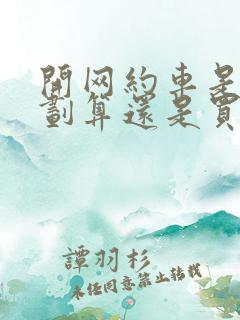 開网約車是
劃算還是買
譚羽杉
未经同意禁止转载